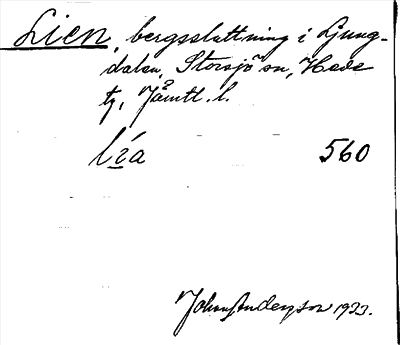 Lien, bergssluttning i Ljung-
dalen, Storsjö sn, Hede
tg, Jämtl. l.
560
Johan Anderson 1933.